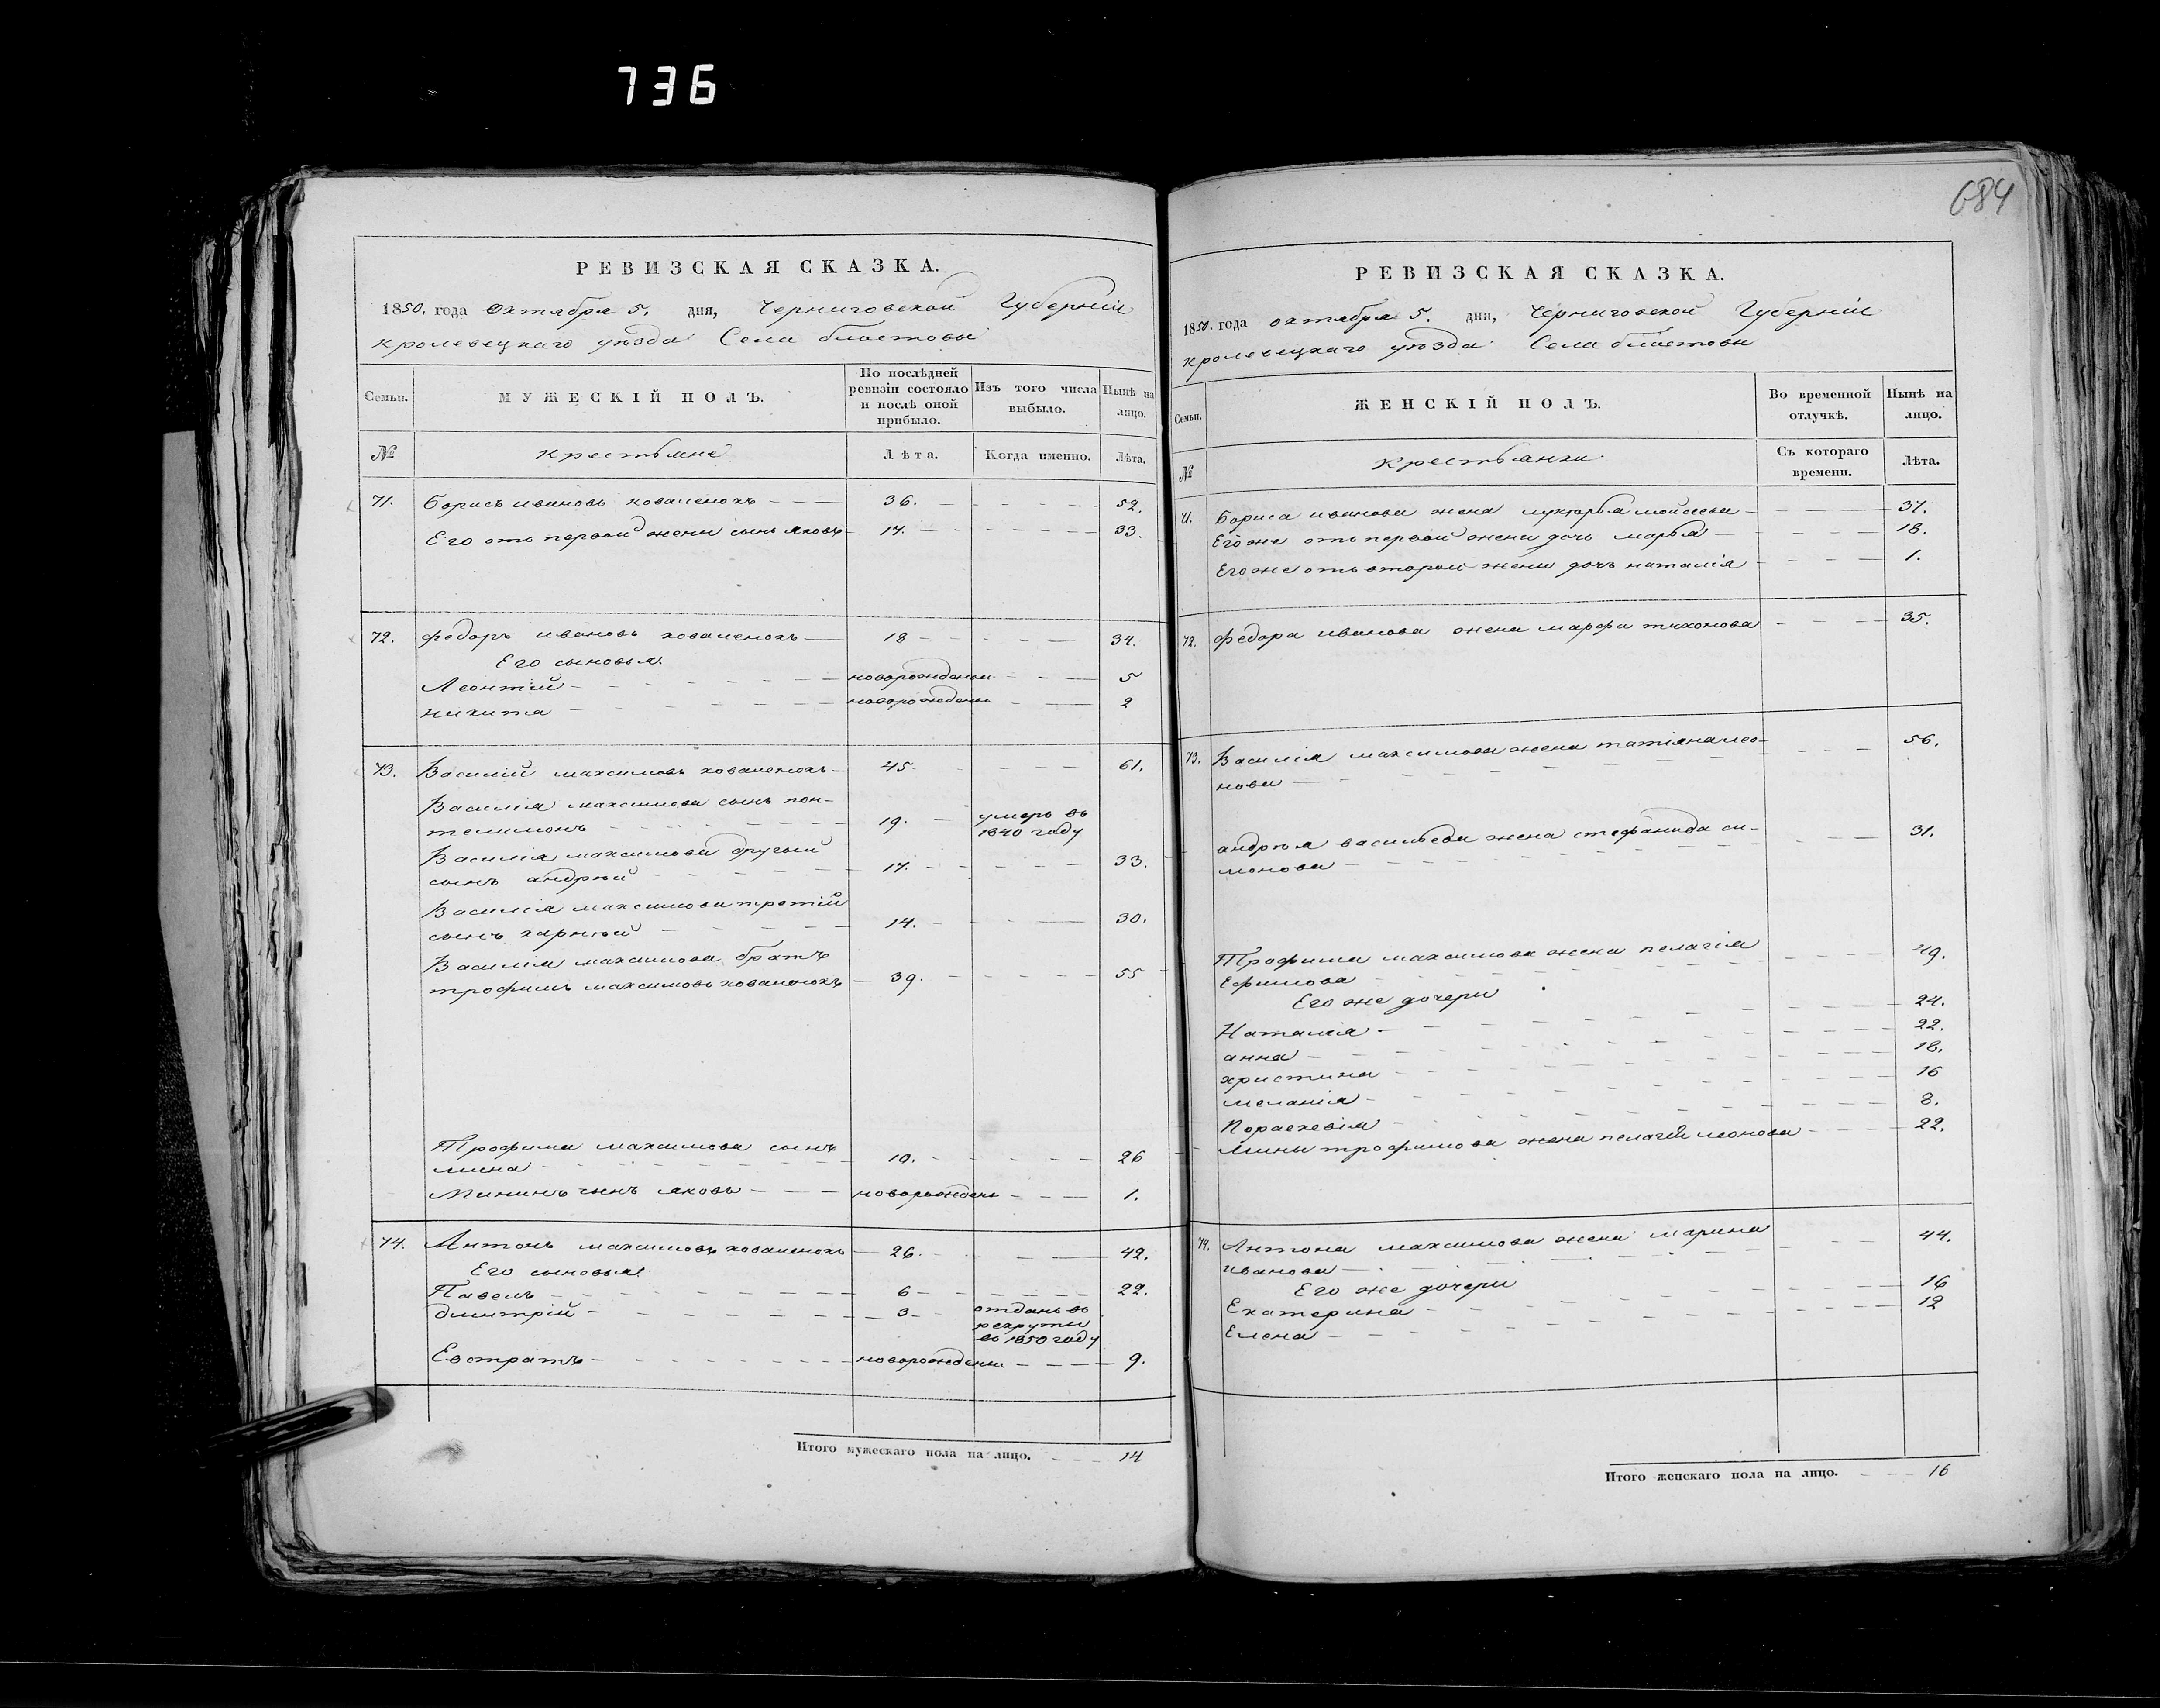 736
684
РЕВИЗСКАЯ СКАЗКА.
1850. года Октября 5. дня, Черниговской Губерніи
кролевецкаго уѣзда Села
Семьи.
МУЖЕСКІЙ ПОЛЪ.
По послѣдней
ревизіи состояло
и послѣ оной
прибыло.
Изъ того числа
выбыло.
Нынѣ на
лицо.
№
крестьяне
Лѣта.
Когда именно.
Лѣта.
71. Борисъ ивановъ коваленокъ 36. 52.
Его отъ первой жены сынъ яковъ 17. 33.
72. федоръ ивановъ коваленокъ 18 34.
Его сыновья
Леонтій новорожденъ 5
никита новорожденъ 2
73. Василій максимовъ коваленокъ 45. 61.
Василія максимова сынъ пон-
телимонъ 19. умеръ въ
1840 году
Василія максимова другой
сынъ андрѣй 17. 33.
Василія максимова третій
сынъ карнѣй 14. 30.
Василія максимова братъ
трофимъ максимовъ коваленокъ 39. 55
Трофима максимова сынъ
мина 10. 26
Мининъ сынъ яковъ новорожденъ 1.
74. Антонъ максимовъ коваленокъ 26. 42.
Его сыновья
Павелъ 6 22.
дмитрій 3 отданъ въ
рекруты
въ 1850 году
Евстратъ новорожденъ 9.
Итого мужескаго пола на лицо. 14
РЕВИЗСКАЯ СКАЗКА.
1850. года октября 5. дня, Черниговской Губерніи
кролевецкаго уѣзда Села
Семьи.
ЖЕНСКІЙ ПОЛЪ.
Во временной
отлучкѣ.
Нынѣ на
лицо.
№
Крестьянки
Съ котораго
времени.
Лѣта.
71. Бориса иванова жена лукерья моисеева 37.
Его же отъ первой жены дочь марья 18.
Его же отъ второй жены дочь наталія 1.
72. федора иванова жена марфа тихонова 35.
73. Василія максимова жена татіяна лео-
нова 56.
андрѣя васильева жена стефанида си-
монова 31.
Трофима максимова жена пелагія
Ефимова 49.
Его же дочери
Наталія 24.
анна 22.
христина 18.
меланія 16
Параскевія 8.
Мины трофимова жена пелагія леонова 22.
74. Антона максимова жена марина
иванова 44.
Его же дочери
Екатерина 16
Елена 12
Итого женскаго пола на лицо. 16